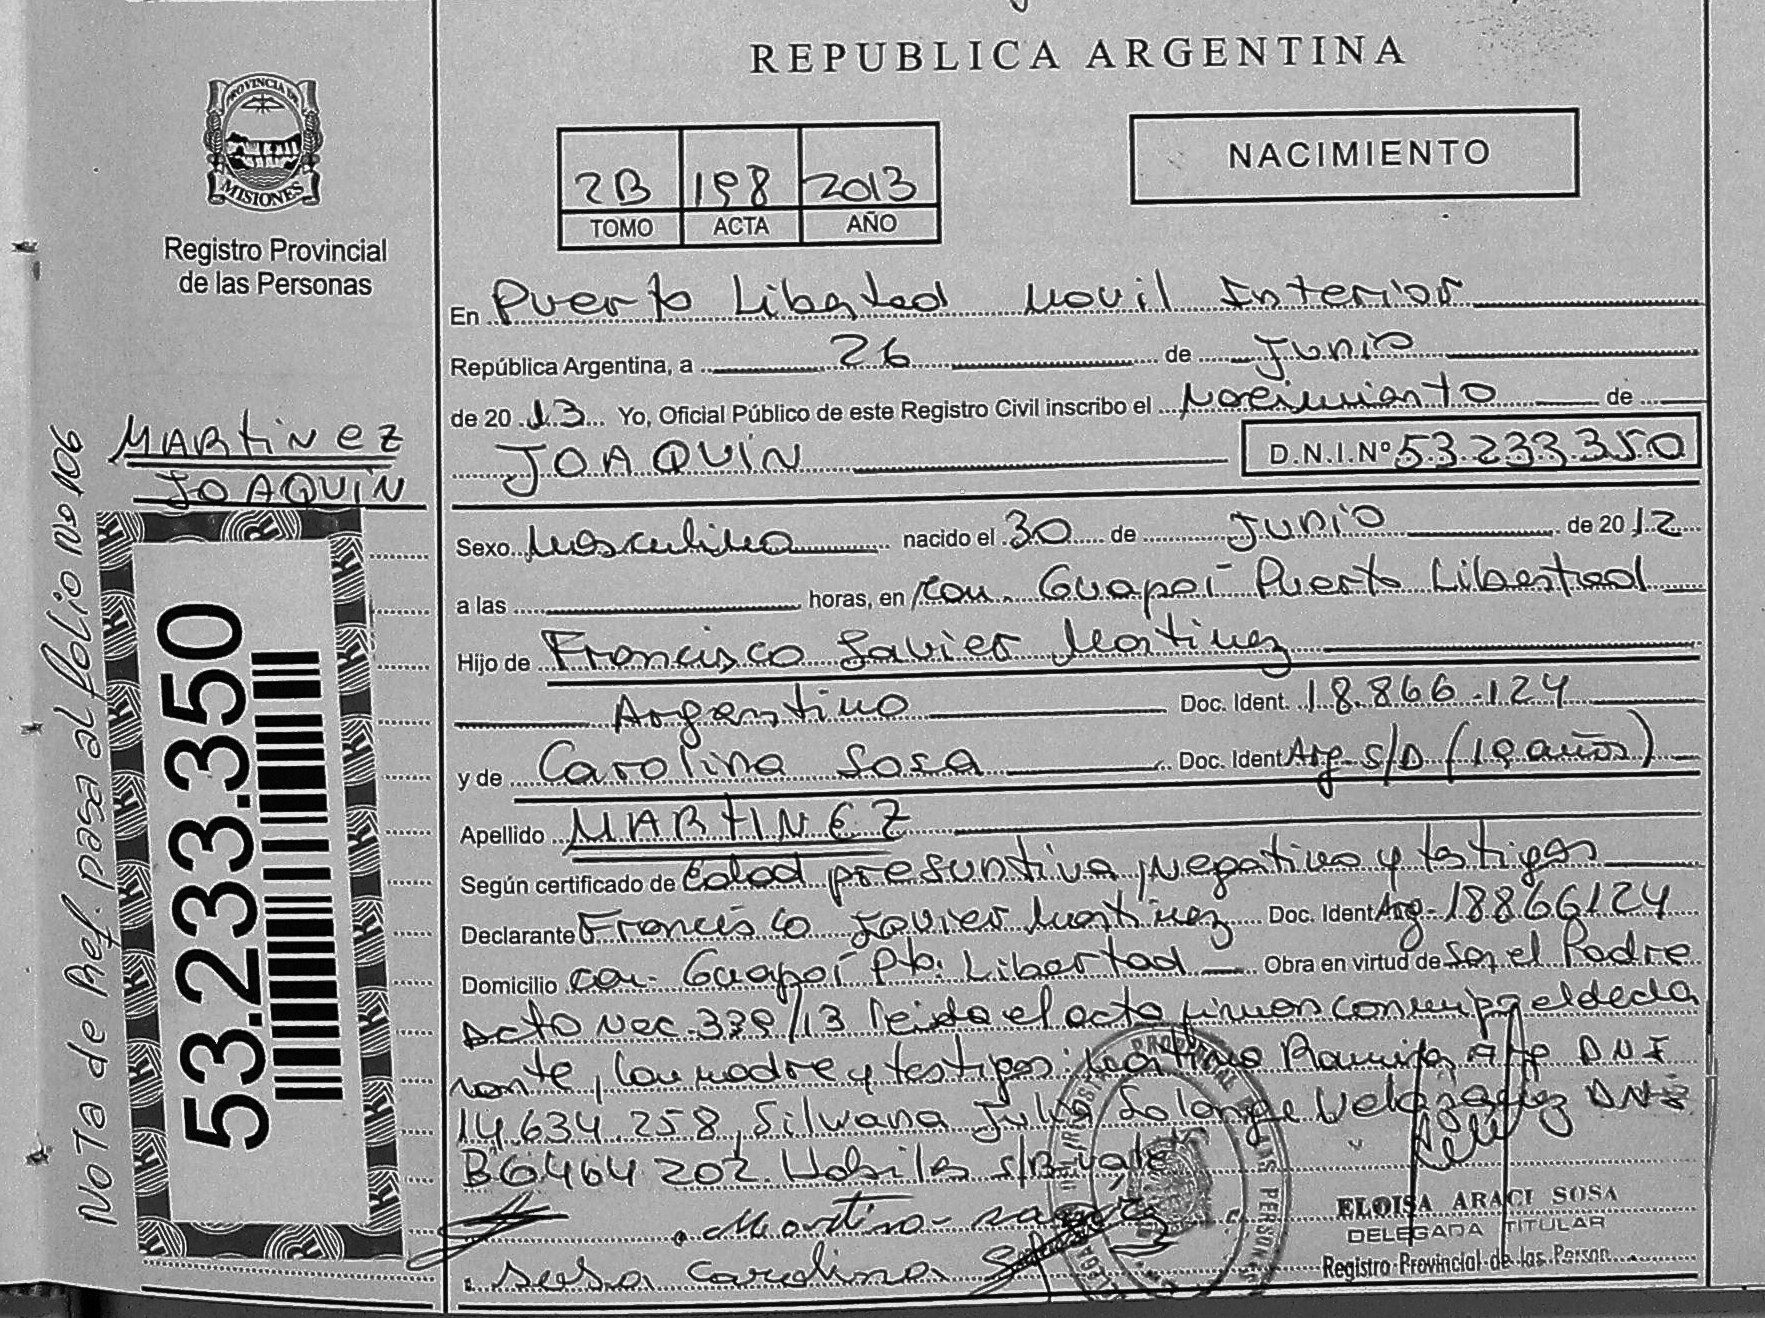 REPUBLICA ARGENTINA
PROVINCIA DE
MISIONES
Registro Provincial
de las Personas
NACIMIENTO
2B 198 2013
TOMO ACTA AÑO
En Puerto Libertad Movil Interior
República Argentina, a 26 de Junio
de 2013 Yo, Oficial Público de este Registro Civil inscribo el Nacimiento de
JOAQUÍN D.N.I.Nº 53.233.350
Sexo Masculino nacido el 30 de Junio de 2012
a las horas, en Com. Guapoí Puerto Libertad
Hijo de Francisco Javier Martinez
Argentino Doc. Ident. 18.866.124
y de Carolina Sosa Doc. Ident Arg. S/D (19 años)
Apellido MARTINEZ
Según certificado de Edad presuntiva, negativo y testigos
Declarante Francisco Javier Martinez Doc. Ident Arg. 18866124
Domicilio Com. Guapoí Pto. Libertad Obra en virtud de ser el Padre
Acto Nec. 339/13 leida el acta firman conmigo el decla
rante, la madre y testigos: Martino Ramirez Arg DNI
14.634.258, Silvana Julia Solange Velazquez DNI
36464202. s/B vale
Martino
sosa Carolina
ELOISA ARACI SOSA
DELEGADA TITULAR
Registro Provincial de las Person
MARTINEZ
JOAQUÍN
53.233.350
Nota de Ref. pasa al folio Nº 106